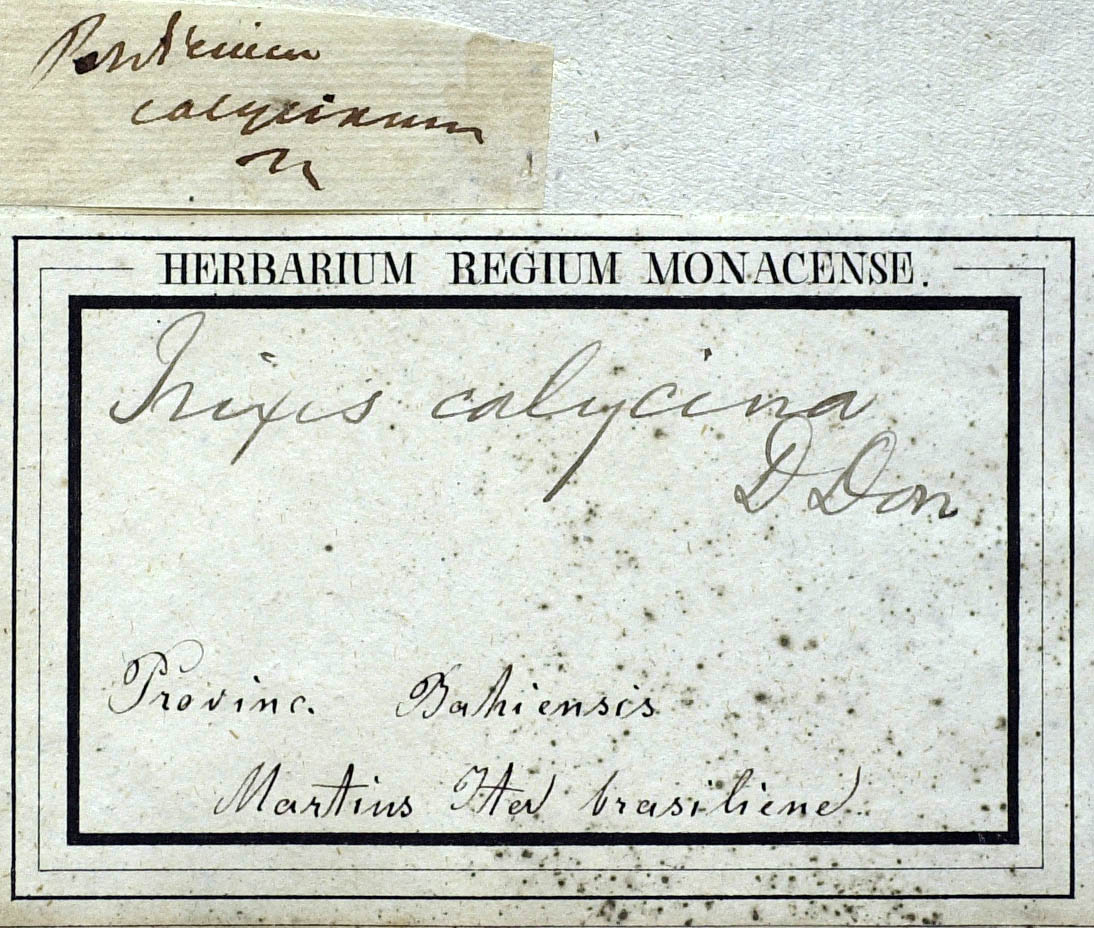 calycinum
HERBARIUM REGIUM MONACENSE.
Trixis calycina
D Don
Provinc. Bahiensis
Martius Iter brasiliens